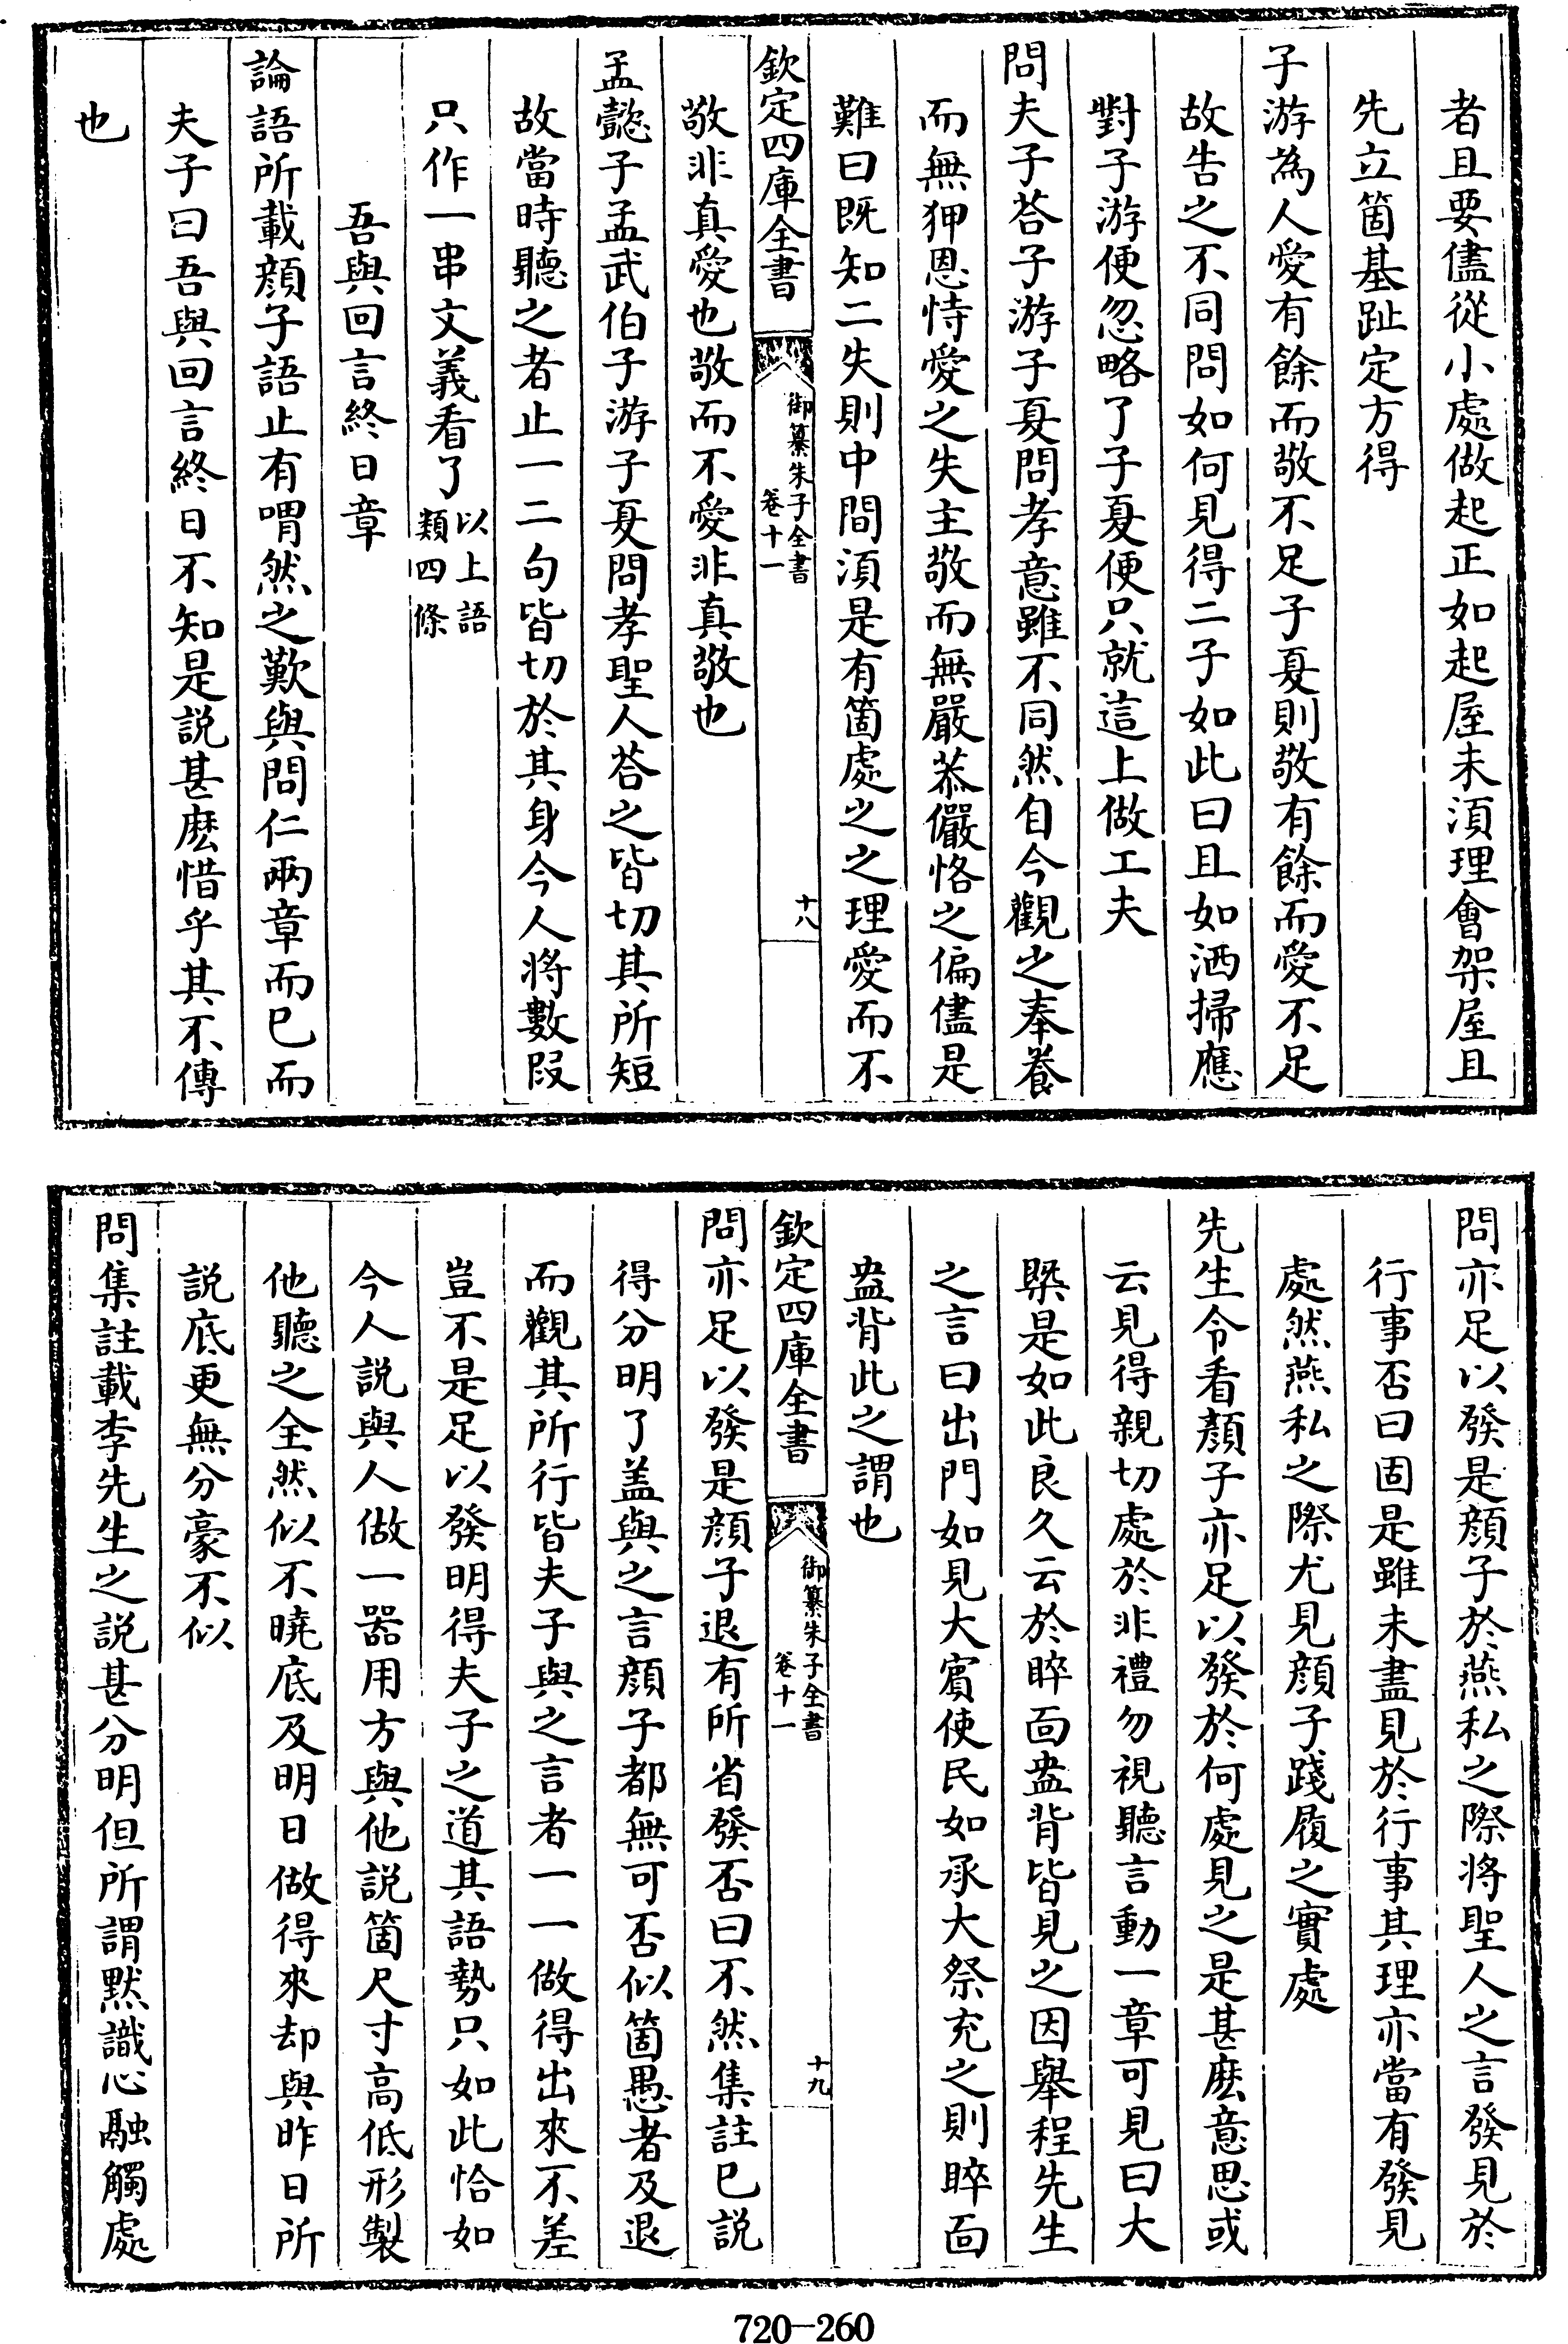 者且要儘從小處做起正如起屋未湏理會架屋且
先立箇基趾定方得
子游為人愛有餘而敬不足子夏則敬有餘而愛不足
故告之不同問如何見得二子如此曰且如洒掃應
對子游便忽略了子夏便只就這上做工夫
問夫子荅子游子夏問孝意雖不同然自今觀之奉養
而無狎恩恃愛之失主敬而無嚴恭儼恪之偏儘是
難曰既知二失則中間湏是有箇處之之理愛而不
欽定四庫全書
御纂朱子全書
卷十一
十八
敬非真愛也敬而不愛非真敬也
孟懿子孟武伯子游子夏問孝聖人荅之皆切其所短
故當時聽之者止一二句皆切於其身今人將數段
只作一串文義看了以上語
類四條
吾與回言終日章
論語所載顔子語止有喟然之歎與問仁兩章而已而
夫子曰吾與回言終日不知是説甚麽惜乎其不傳
也
問亦足以發是顔子於燕私之際將聖人之言發見於
行事否曰固是雖未盡見於行事其理亦當有發見
處然燕私之際尤見顔子踐履之實處
先生令看顔子亦足以發於何處見之是甚麽意思或
云見得親切處於非禮勿視聽言動一章可見曰大
槩是如此良久云於睟面盎背皆見之因舉程先生
之言曰出門如見大賓使民如承大祭充之則睟面
盎背此之謂也
欽定四庫全書
御纂朱子全書
卷十一
十九
問亦足以發是顔子退有所省發否曰不然集註已説
得分明了盖與之言顔子都無可否似箇愚者及退
而觀其所行皆夫子與之言者一一做得出來不差
豈不是足以發明得夫子之道其語勢只如此恰如
今人説與人做一器用方與他説箇尺寸高低形製
他聽之全然似不曉底及明日做得來却與昨日所
説底更無分豪不似
問集註載李先生之説甚分明但所謂黙識心融觸處
720-260